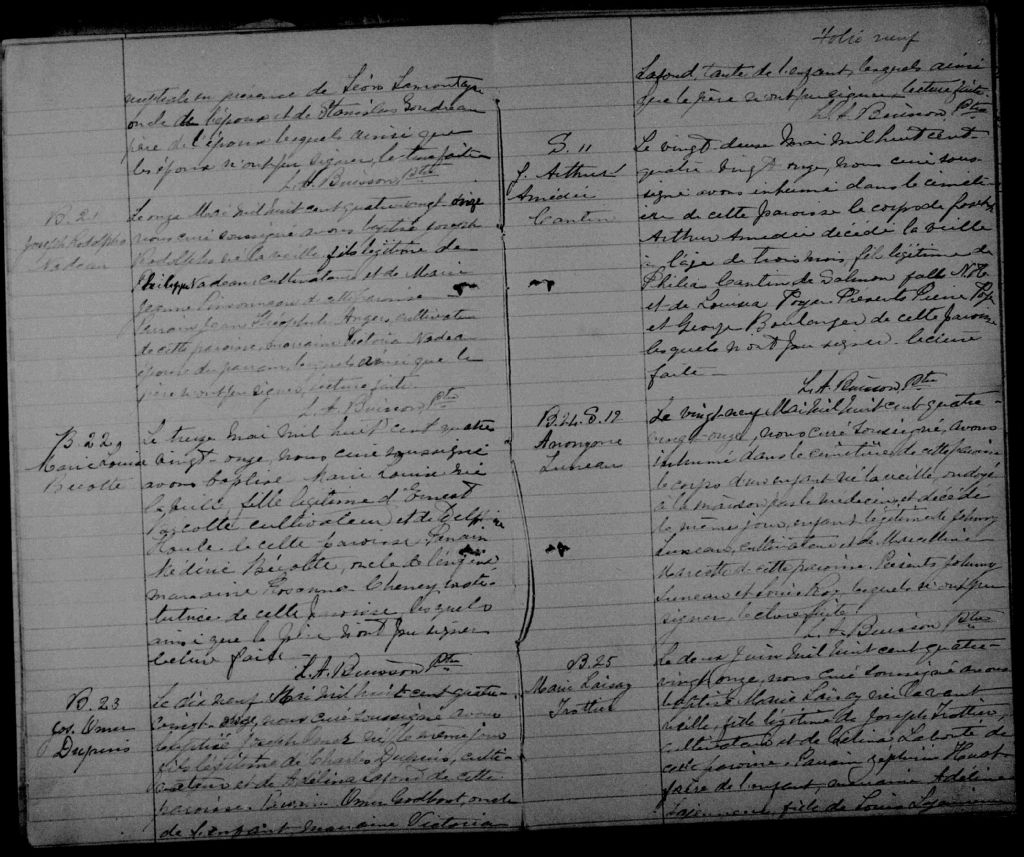 en présence de Léon Lamontagne
oncle de l'épouse et de Stanislas Gendreau
père de l'époux lesquels ainsi que
les époux n'ont pu signer, lecture faite
L. A. Buisson Ptre
B. 21
Joseph Rodolphe
Nadeau
Le onze Mai mil huit cent quatre vingt onze
nous curé soussigné avons baptisé Joseph
Rodolphe né la veille fils légitime de
Philippe Nadeau cultivateur et de Marie
Jeanne de cette paroisse
Parrain Jean Théophile Angers, cultivateur
de cette paroisse, marraine Victoria Nadeau
épouse du parrain, lesquels ainsi que le
père n'ont pu signer, lecture faite.
L. A. Buisson Ptre
B. 22
Marie Louise
Bécotte
Le treize Mai mil huit cent quatre
vingt onze, nous curé soussigné
avons baptisé Marie Louise née
fille légitime d'Ernest
Bécotte cultivateur et de Delphine
Houle de cette paroisse Parrain
Bécotte, oncle de l'enfant
marraine Rosanna Cheney, insti-
tutrice de cette paroisse, lesquels
ainsi que le père n'ont pu signer
lecture faite
L. A. Buisson Ptre
B. 23
Jos. Omer
Dupuis
Le dix neuf Mai mil huit cent quatre
vingt onze, nous curé soussigné avons
baptisé Joseph Omer né le même jour
fils légitime de Charles Dupuis, culti-
vateur et de Lafond de cette
paroisse. Parrain Omer Godbout, oncle
de l'enfant marraine Victoria
Folio neuf
Lafond, tante de l'enfant, lesquels ainsi
que le père n'ont pu signer, lecture faite
L. A. Buisson Ptre
S. 11
J. Arthur
Amédée
Cantin
Le vingt deux Mai mil huit cent
quatre vingt onze, nous curé sous-
signé avons inhumé dans le cimeti-
ère de cette paroisse le corps de Joseph
Arthur Amédée décédé la veille
à l'âge de trois mois, fils légitime de
Cantin de Salmon falls
et de Louisa Présents Pierre
et George Boulanger de cette paroisse
lesquels n'ont pu signer lecture
faite
L. A. Buisson Ptre
B. 24. S. 12
Anonyme
Luneau
Le vingt-neuf Mai mil huit cent quatre-
vingt-onze, nous curé soussigné, avons
inhumé dans le cimetière de cette paroisse
le corps d'un enfant né la veille, ondoyé
à la maison par le médecin, et décédé
le même jour, enfant légitime de Johnny
Luneau, cultivateur et de Marcelline
Marcotte de cette paroisse. Présents Johnny
Luneau et Louis Roy, lesquels n'ont pu
signer, lecture faite
L. A. Buisson Ptre
B. 25
Marie
Trottier
Le deux Juin mil huit cent quatre-
vingt onze, nous curé soussigné avons
baptisé Marie née l'avant
veille, fille légitime de Joseph Trottier,
cultivateur et de Célina Laberté de
cette paroisse. Parrain Zéphirin
de l'enfant, marraine Adéline
fille de Louis